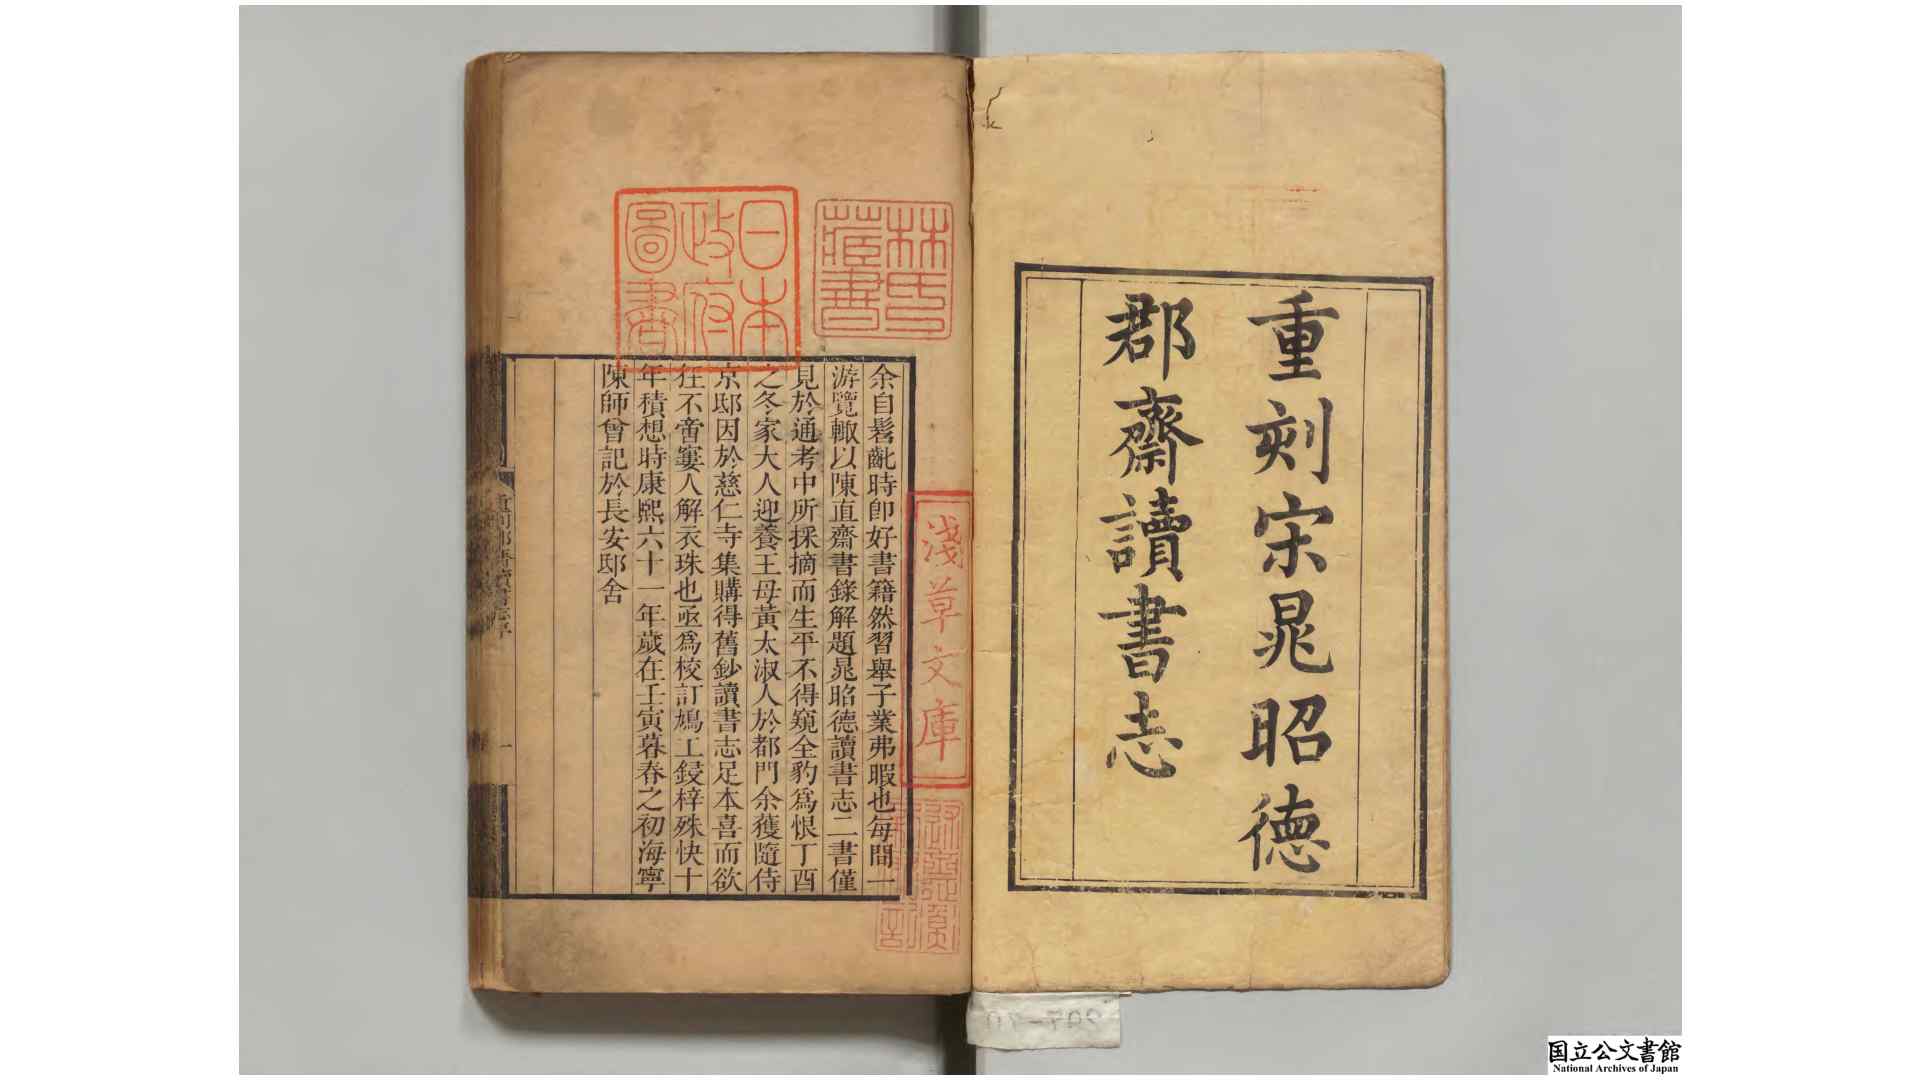 重刻宋晁昭德
郡齋讀書志
林氏藏書
日本政府圖書
淺草文庫
余自髫齔時卽好書籍然習舉子業弗暇也每間一
游覽輙以陳直齋書錄解題晁昭德讀書志二書僅
見於通考中所採摘而生平不得窺全豹爲恨丁酉
之冬家大人迎養王母黃太淑人於都門余獲隨侍
京邸因於慈仁寺集購得舊鈔讀書志足本喜而欲
狂不啻窶人解衣珠也亟爲校訂鳩工鋟梓殊快十
年積想時康熙六十一年歲在壬寅暮春之初海寧
陳師曾記於長安邸舍
重刊郡齋讀書志序
一
国立公文書館
National Archives of Japan